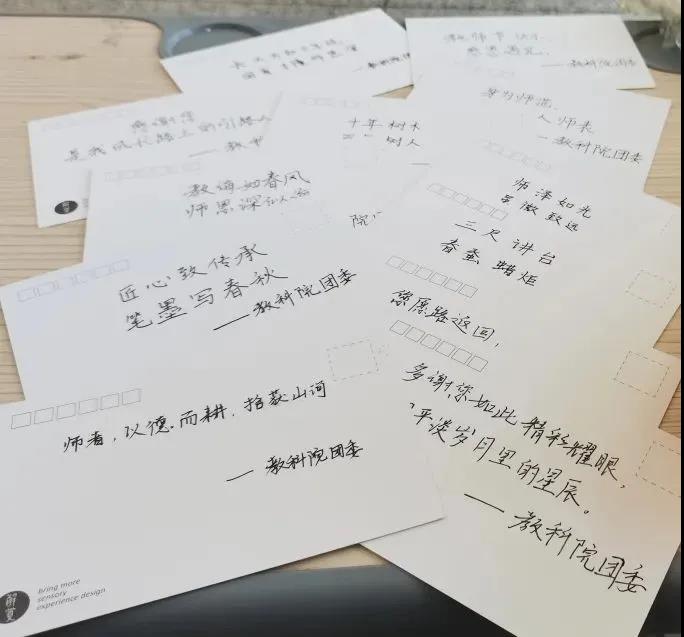 ——教科院团委
教师节快乐
感恩遇见,
——教科院团委
感谢您
是我成长路上的引路人
身为师范,
人师表
——教科院团委
十年树木
树人
教诲如春风
师恩深似海
院
师泽如光
虽微致远
三尺讲台
春蚕蜡炬
匠心致传承
笔墨写春秋
——教科院团委
您愿路返回,
师者,以德而耕,拾获山河
——教科院团委
多谢,您如此精彩耀眼,
平淡岁月里的星辰。
——教科院团委
bring more
sensory
experience design